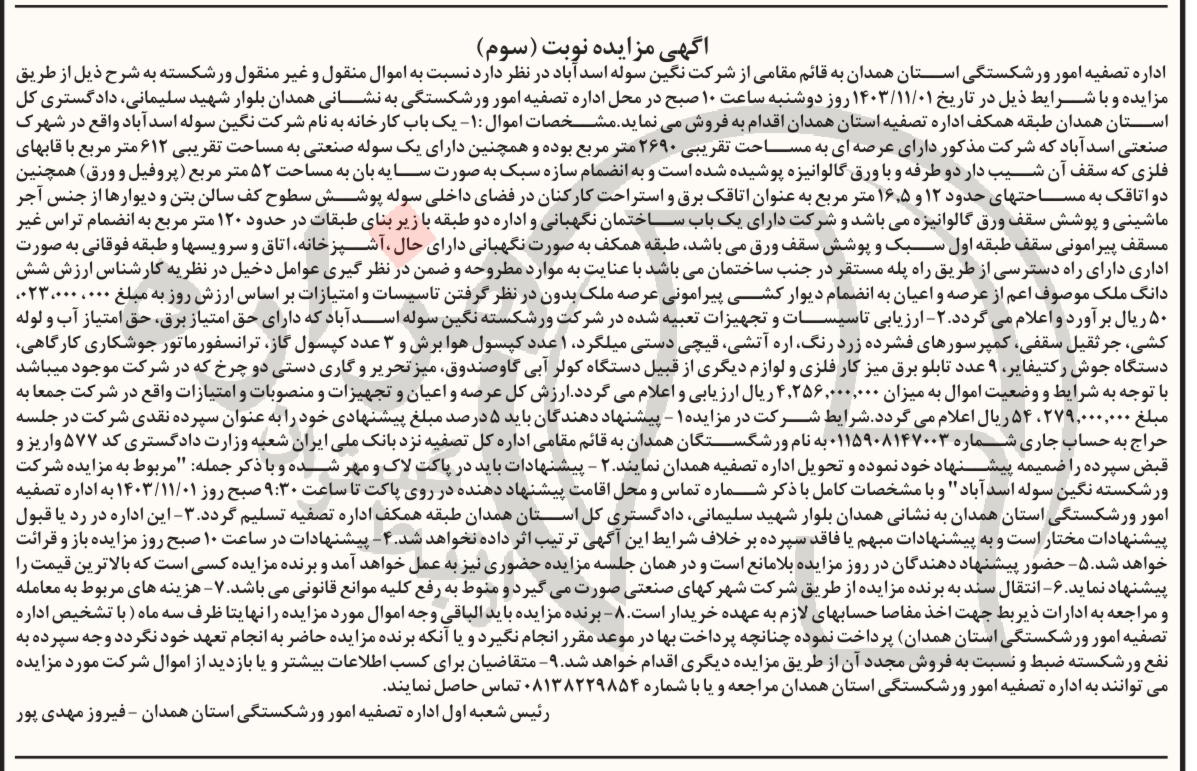 اگهی مزایده نوبت (سوم)
اداره تصفیه امور ورشکستگی استان همدان به قائم مقامی از شرکت نگین سوله اسدآباد در نظر دارد نسبت به اموال منقول و غیر منقول ورشکسته به شرح ذیل از طریق
مزایده و با شرایط ذیل در تاریخ ۱۴۰۳/۱۱/۰۱ روز دوشنبه ساعت ۱۰ صبح در محل اداره تصفیه امور ورشکستگی به نشانی همدان بلوار شهید سلیمانی، دادگستری کل
استان همدان طبقه همکف اداره تصفیه استان همدان اقدام به فروش می نماید.مشخصات اموال :۱- یک باب کارخانه به نام شرکت نگین سوله اسدآباد واقع در شهرک
صنعتی اسدآباد که شرکت مذکور دارای عرصه ای به مساحت تقریبی ۲۶۹۰ متر مربع بوده و همچنین دارای یک سوله صنعتی به مساحت تقریبی ۶۱۲ متر مربع با قابهای
فلزی که سقف آن شیب دار دو طرفه و با ورق گالوانیزه پوشیده شده است و به انضمام سازه سبک به صورت سایه بان به مساحت ۵۲ متر مربع (پروفیل و ورق) همچنین
دو اتاقک به مساحتهای حدود ۱۲ و ۱۶,۵ متر مربع به عنوان اتاقک برق و استراحت کارکنان در فضای داخلی سوله پوشش سطوح کف سالن بتن و دیوارها از جنس آجر
ماشینی و پوشش سقف ورق گالوانیزه می باشد و شرکت دارای یک باب ساختمان نگهبانی و اداره دو طبقه با زیربنای طبقات در حدود ۱۲۰ متر مربع به انضمام تراس غیر
مسقف پیرامونی سقف طبقه اول سبک و پوشش سقف ورق می باشد، طبقه همکف به صورت نگهبانی دارای حال ،آشپزخانه، اتاق و سرویسها و طبقه فوقانی به صورت
اداری دارای راه دسترسی از طریق راه پله مستقر در جنب ساختمان می باشد با عنایت به موارد مطروحه و ضمن در نظر گیری عوامل دخیل در نظریه کارشناس ارزش شش
دانگ ملک موصوف اعم از عرصه و اعیان به انضمام دیوار کشی پیرامونی عرصه ملک بدون در نظر گرفتن تاسیسات و امتیازات بر اساس ارزش روز به مبلغ ۰۲۳,۰۰۰,۰۰۰,
۵۰ ریال برآورد و اعلام می گردد.۲- ارزیابی تاسیسات و تجهیزات تعبیه شده در شرکت ورشکسته نگین سوله اسدآباد که دارای حق امتیاز برق، حق امتیاز آب و لوله
کشی، جرثقیل سقفی، کمپرسورهای فشرده زرد رنگ، اره آتشی، قیچی دستی میلگرد، ۱ عدد کپسول هوا برش و ۳ عدد کپسول گاز، ترانسفورماتور جوشکاری کارگاهی،
دستگاه جوش رکتیفایر، ۹ عدد تابلو برق میز کار فلزی و لوازم دیگری از قبیل دستگاه کولر آبی گاوصندوق، میز تحریر و گاری دستی دو چرخ که در شرکت موجود میباشد
با توجه به شرایط و وضعیت اموال به میزان ۴,۲۵۶,۰۰۰,۰۰۰ ریال ارزیابی و اعلام می گردد.ارزش کل عرصه و اعیان و تجهیزات و منصوبات و امتیازات واقع در شرکت جمعا به
مبلغ ۵۴,۲۷۹,۰۰۰,۰۰۰ریال اعلام می گردد.شرایط شرکت در مزایده۱- پیشنهاد دهندگان باید ۵درصد مبلغ پیشنهادی خود را به عنوان سپرده نقدی شرکت در جلسه
حراج به حساب جاری شماره ۰۱۱۵۹۰۸۱۴۷۰۰۳به نام ورشگستگان همدان به قائم مقامی اداره کل تصفیه نزد بانک ملی ایران شعبه وزارت دادگستری کد ۵۷۷واریز و
قبض سپرده را ضمیمه پیشنهاد خود نموده و تحویل اداره تصفیه همدان نمایند.۲- پیشنهادات باید در پاکت لاک و مهر شده و با ذکر جمله: "مربوط به مزایده شرکت
ورشکسته نگین سوله اسدآباد" و با مشخصات کامل با ذکر شماره تماس و محل اقامت پیشنهاد دهنده در روی پاکت تا ساعت ۹:۳۰ صبح روز ۱۴۰۳/۱۱/۰۱ به اداره تصفیه
امور ورشکستگی استان همدان به نشانی همدان بلوار شهید سلیمانی، دادگستری کل استان همدان طبقه همکف اداره تصفیه تسلیم گردد.۳- این اداره در رد یا قبول
پیشنهادات مختار است و به پیشنهادات مبهم یا فاقد سپرده بر خلاف شرایط این آگهی ترتیب اثر داده نخواهد شد.۴- پیشنهادات در ساعت ۱۰ صبح روز مزایده باز و قرائت
خواهد شد.۵- حضور پیشنهاد دهندگان در روز مزایده بلامانع است و در همان جلسه مزایده حضوری نیز به عمل خواهد آمد و برنده مزایده کسی است که بالاترین قیمت را
پیشنهاد نماید.۶- انتقال سند به برنده مزایده از طریق شرکت شهرکهای صنعتی صورت می گیرد و منوط به رفع کلیه موانع قانونی می باشد.۷- هزینه های مربوط به معامله
و مراجعه به ادارات ذیربط جهت اخذ مفاصا حسابهای لازم به عهده خریدار است.۸- برنده مزایده باید الباقی وجه اموال مورد مزایده را نهایتا ظرف سه ماه ( با تشخیص اداره
تصفیه امور ورشکستگی استان همدان) پرداخت نموده چنانچه پرداخت بها در موعد مقرر انجام نگیرد و یا آنکه برنده مزایده حاضر به انجام تعهد خود نگردد وجه سپرده به
نفع ورشکسته ضبط و نسبت به فروش مجدد آن از طریق مزایده دیگری اقدام خواهد شد.۹- متقاضیان برای کسب اطلاعات بیشتر و یا بازدید از اموال شرکت مورد مزایده
می توانند به اداره تصفیه امور ورشکستگی استان همدان مراجعه و یا با شماره ۰۸۱۳۸۲۲۹۸۵۴ تماس حاصل نمایند.
رئیس شعبه اول اداره تصفیه امور ورشکستگی استان همدان -فیروز مهدی پور